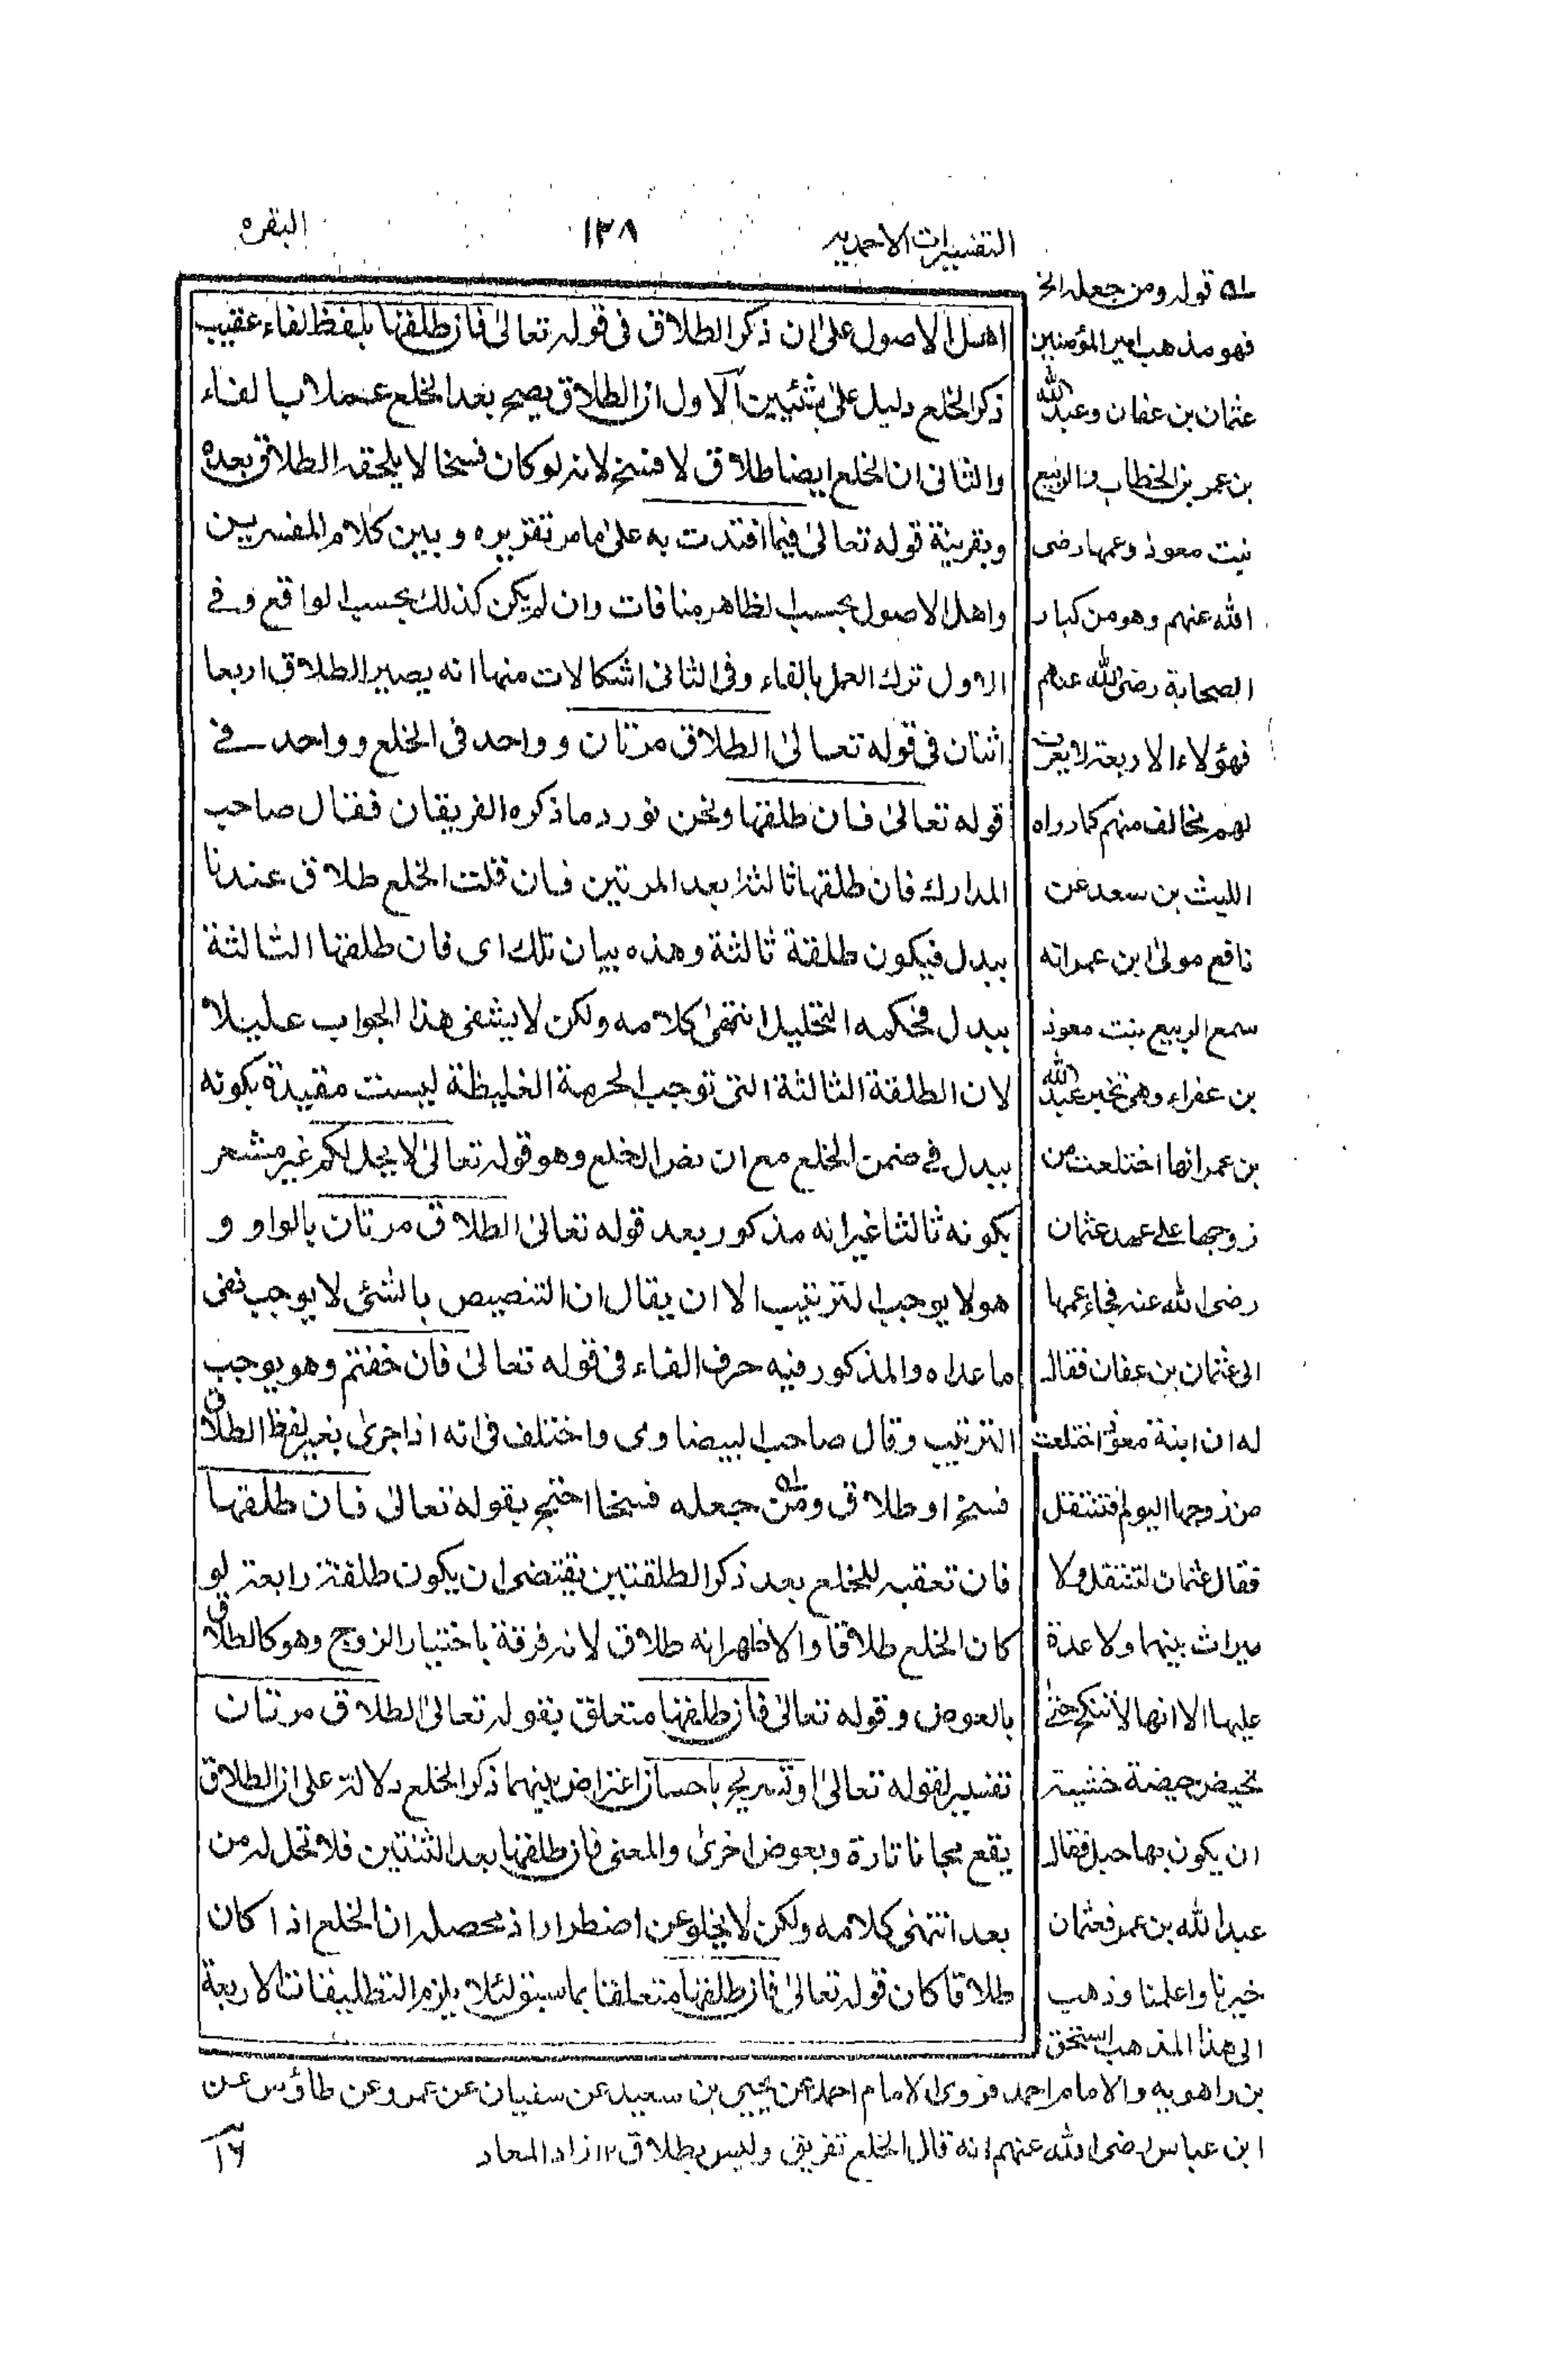 التفسيرات الاحمديه
١٣٨
البقره
اهل الاصول على ان ذكر الطلاق فى قوله تعالىٰ فان طلقها بلفظ الفاء عقيب
ذكر الخلع دليل على شئيين الاول ان الطلاق يصح بعد الخلع عملا بالفاء
والثانى ان الخلع ايضا طلاق لا فسخ لانه لو كان فسخا لا يلحقه الطلاق بعده
وبقرينة قوله تعالىٰ فيما افتدت به علىٰ ما مر تقريره و بين كلام المفسريين
واهل الاصول بحسب الظاهر منافات وان لم يكن كذلك بحسب الواقع وفے
الاول ترك العمل بالفاء وفى الثانى اشكالات منها انه يصير الطلاق اربعا
اثنان فى قوله تعالىٰ الطلاق مرتان و واحد فى الخلع وواحد فے
قوله تعالىٰ فان طلقها ونحن نورد ما ذكره الفريقان فقال صاحب
المدارك فان طلقها ثالثة بعد المرتين فان قلت الخلع طلاق عندنا
ببدل فيكون طلقة ثالثة وهذه بيان تلك اى فان طلقها الثالثة
ببدل فحكمه التحليل انتهىٰ كلامه ولكن لا يشفى هذا الجواب عليلا
لان الطلقة الثالثة التى توجب الحرمة الغليظة ليست مقيدة بكونه
ببدل فے ضمن الخلع مع ان نص الخلع وهو قوله تعالىٰ لا يحل لكم غير مشعر
بكونه ثالثا غير انه مذكور بعد قوله تعالىٰ الطلاق مرتان بالواو و
هو لا يوجب الترتيب الا ان يقال ان التنصيص بالشئ لا يوجب نفى
ما عداه والمذكور فيه حرف الفاء فى قوله تعالىٰ فان خفتم وهو يوجب
الترتيب وقال صاحب البيضاوى واختلف فى انه اذا جرىٰ بغير لفظ الطلاق
فسخ او طلاق ومن جعله فسخا احتج بقوله تعالىٰ فان طلقها
فان تعقبه للخلع بعد ذكر الطلقتين يقتضى ان يكون طلقة رابعة لو
كان الخلع طلاقا والاظهر انه طلاق لانه فرقة باختيار الزوج وهو كالطلاق
بالعوض وقوله تعالىٰ فان طلقها متعلق بقوله تعالىٰ الطلاق مرتان
تفسير لقوله تعالىٰ او تسريح باحسان اعتراض بينهما ذكر الخلع دلالة على ان الطلاق
يقع مجانا تارة وبعوض اخرىٰ والمعنى فان طلقها بعد الثنتين فلا تحل له من
بعد انتهى كلامه ولكن لا يخلو عن اضطرار اذ محصله ان الخلع اذا كان
طلاقا كان قوله تعالىٰ فان طلقها متعلقا بما سبق لئلا يلزم التطليقات الاربعة
لـه قوله ومن جعله الخ
فهو مذهب امير المؤمنين
عثمان بن عفان وعبد الله
بن عمر بن الخطاب والربيع
بنت معوذ وعمها رضى
الله عنهم وهو من كبار
الصحابة رضى الله عنهم
فهؤلاء الاربعة لا يعرف
لهم مخالف منهم كما رواه
الليث بن سعد عن
نافع مولىٰ ابن عمر انه
سمع الربيع بنت معوذ
بن عفراء وهى تخبر عبد الله
بن عمر انها اختلعت من
زوجها على عهد عثمان
رضى الله عنه فجاء عمها
الى عثمان بن عفان فقال
له ان ابنة معوذ اختلعت
من زوجها اليوم افتنتقل
فقال عثمان لتنتقل ولا
ميراث بينهما ولا عدة
عليها الا انها لا تنكح حتىٰ
تحيض حيضة خشية
ان يكون بها حبل فقال
عبد الله بن عمر فعثمان
خيرنا واعلمنا وذهب
الى هذا المذهب اسحٰق
بن راهويه والامام احمد فروى الامام احمد عن يحيىٰ بن سعيد عن سفيان عن عمرو عن طاؤس عن
ابن عباس رضى الله عنهم انه قال الخلع تفريق وليس بطلاق ١٢ زاد المعاد